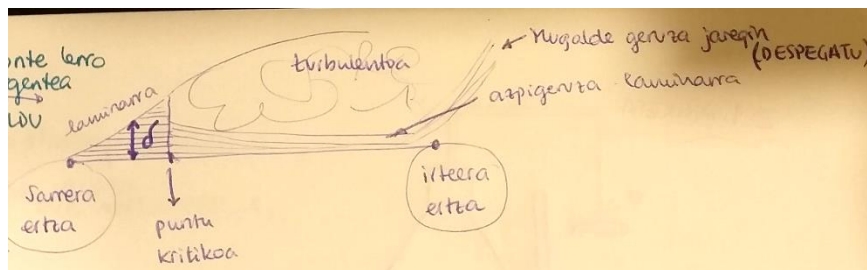 nte lerro
gentea
LDU
laminarra
δ
turbulentoa
Mugalde geruza jaregin
(DESPEGATU)
azpigeruza laminarra
Sarrera
ertza
puntu
kritikoa
irteera
ertza